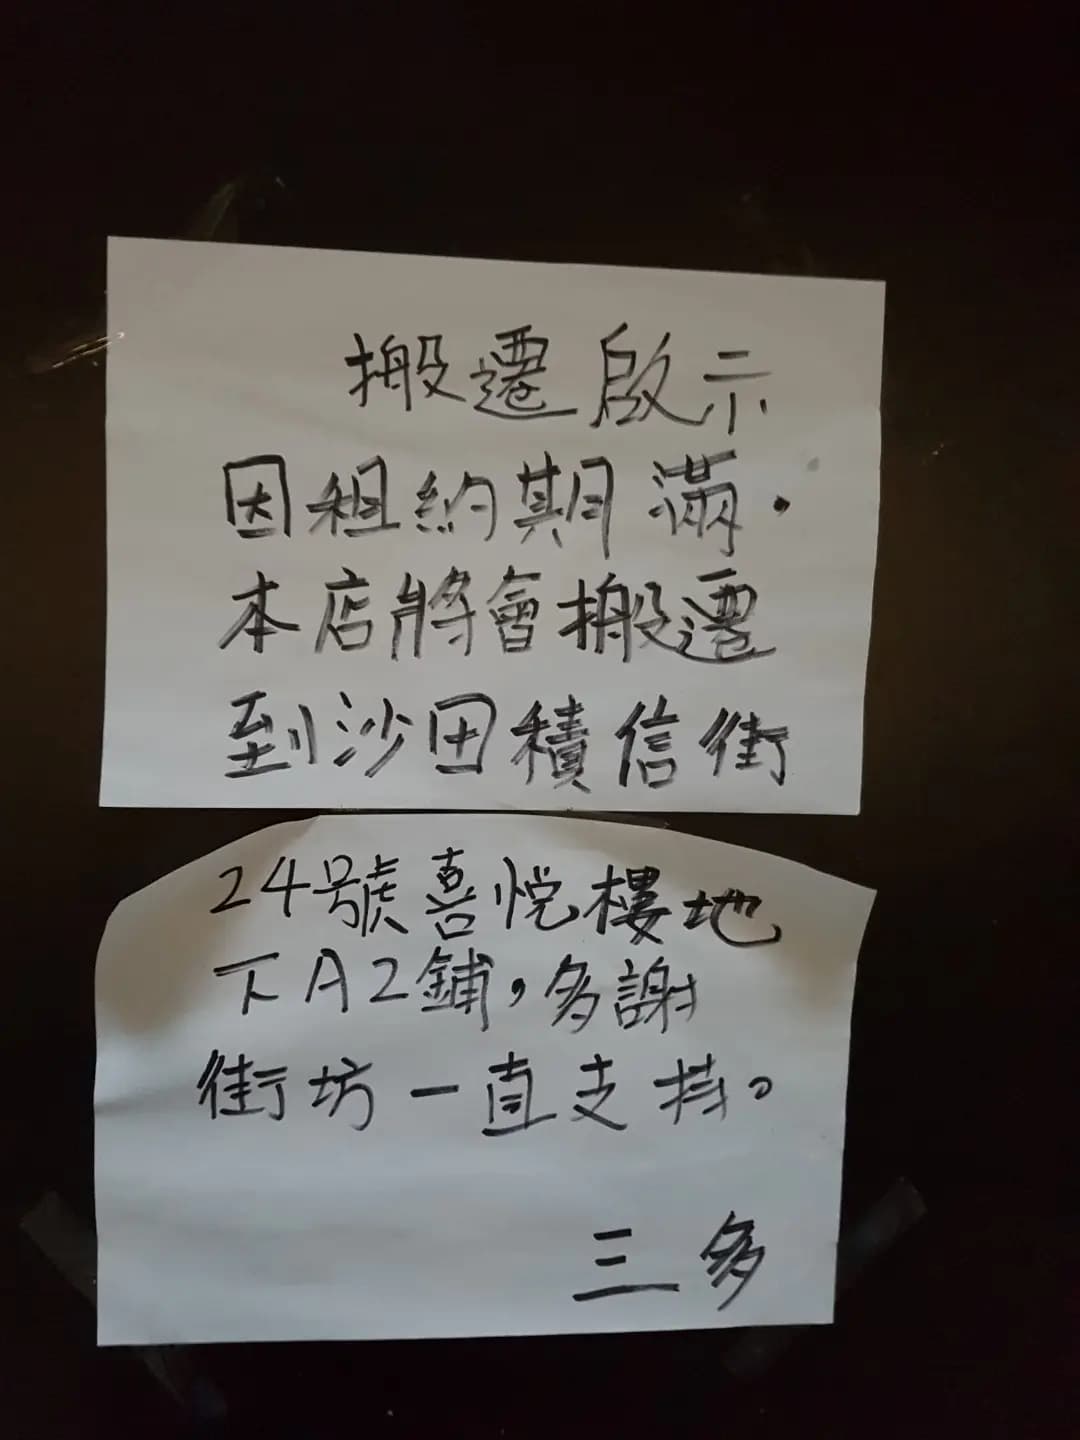 搬遷啟示
因租約期滿．
本店將會搬遷
到沙田積信街
24號喜悅樓地
下A2鋪，多謝
街坊一直支持。
三多